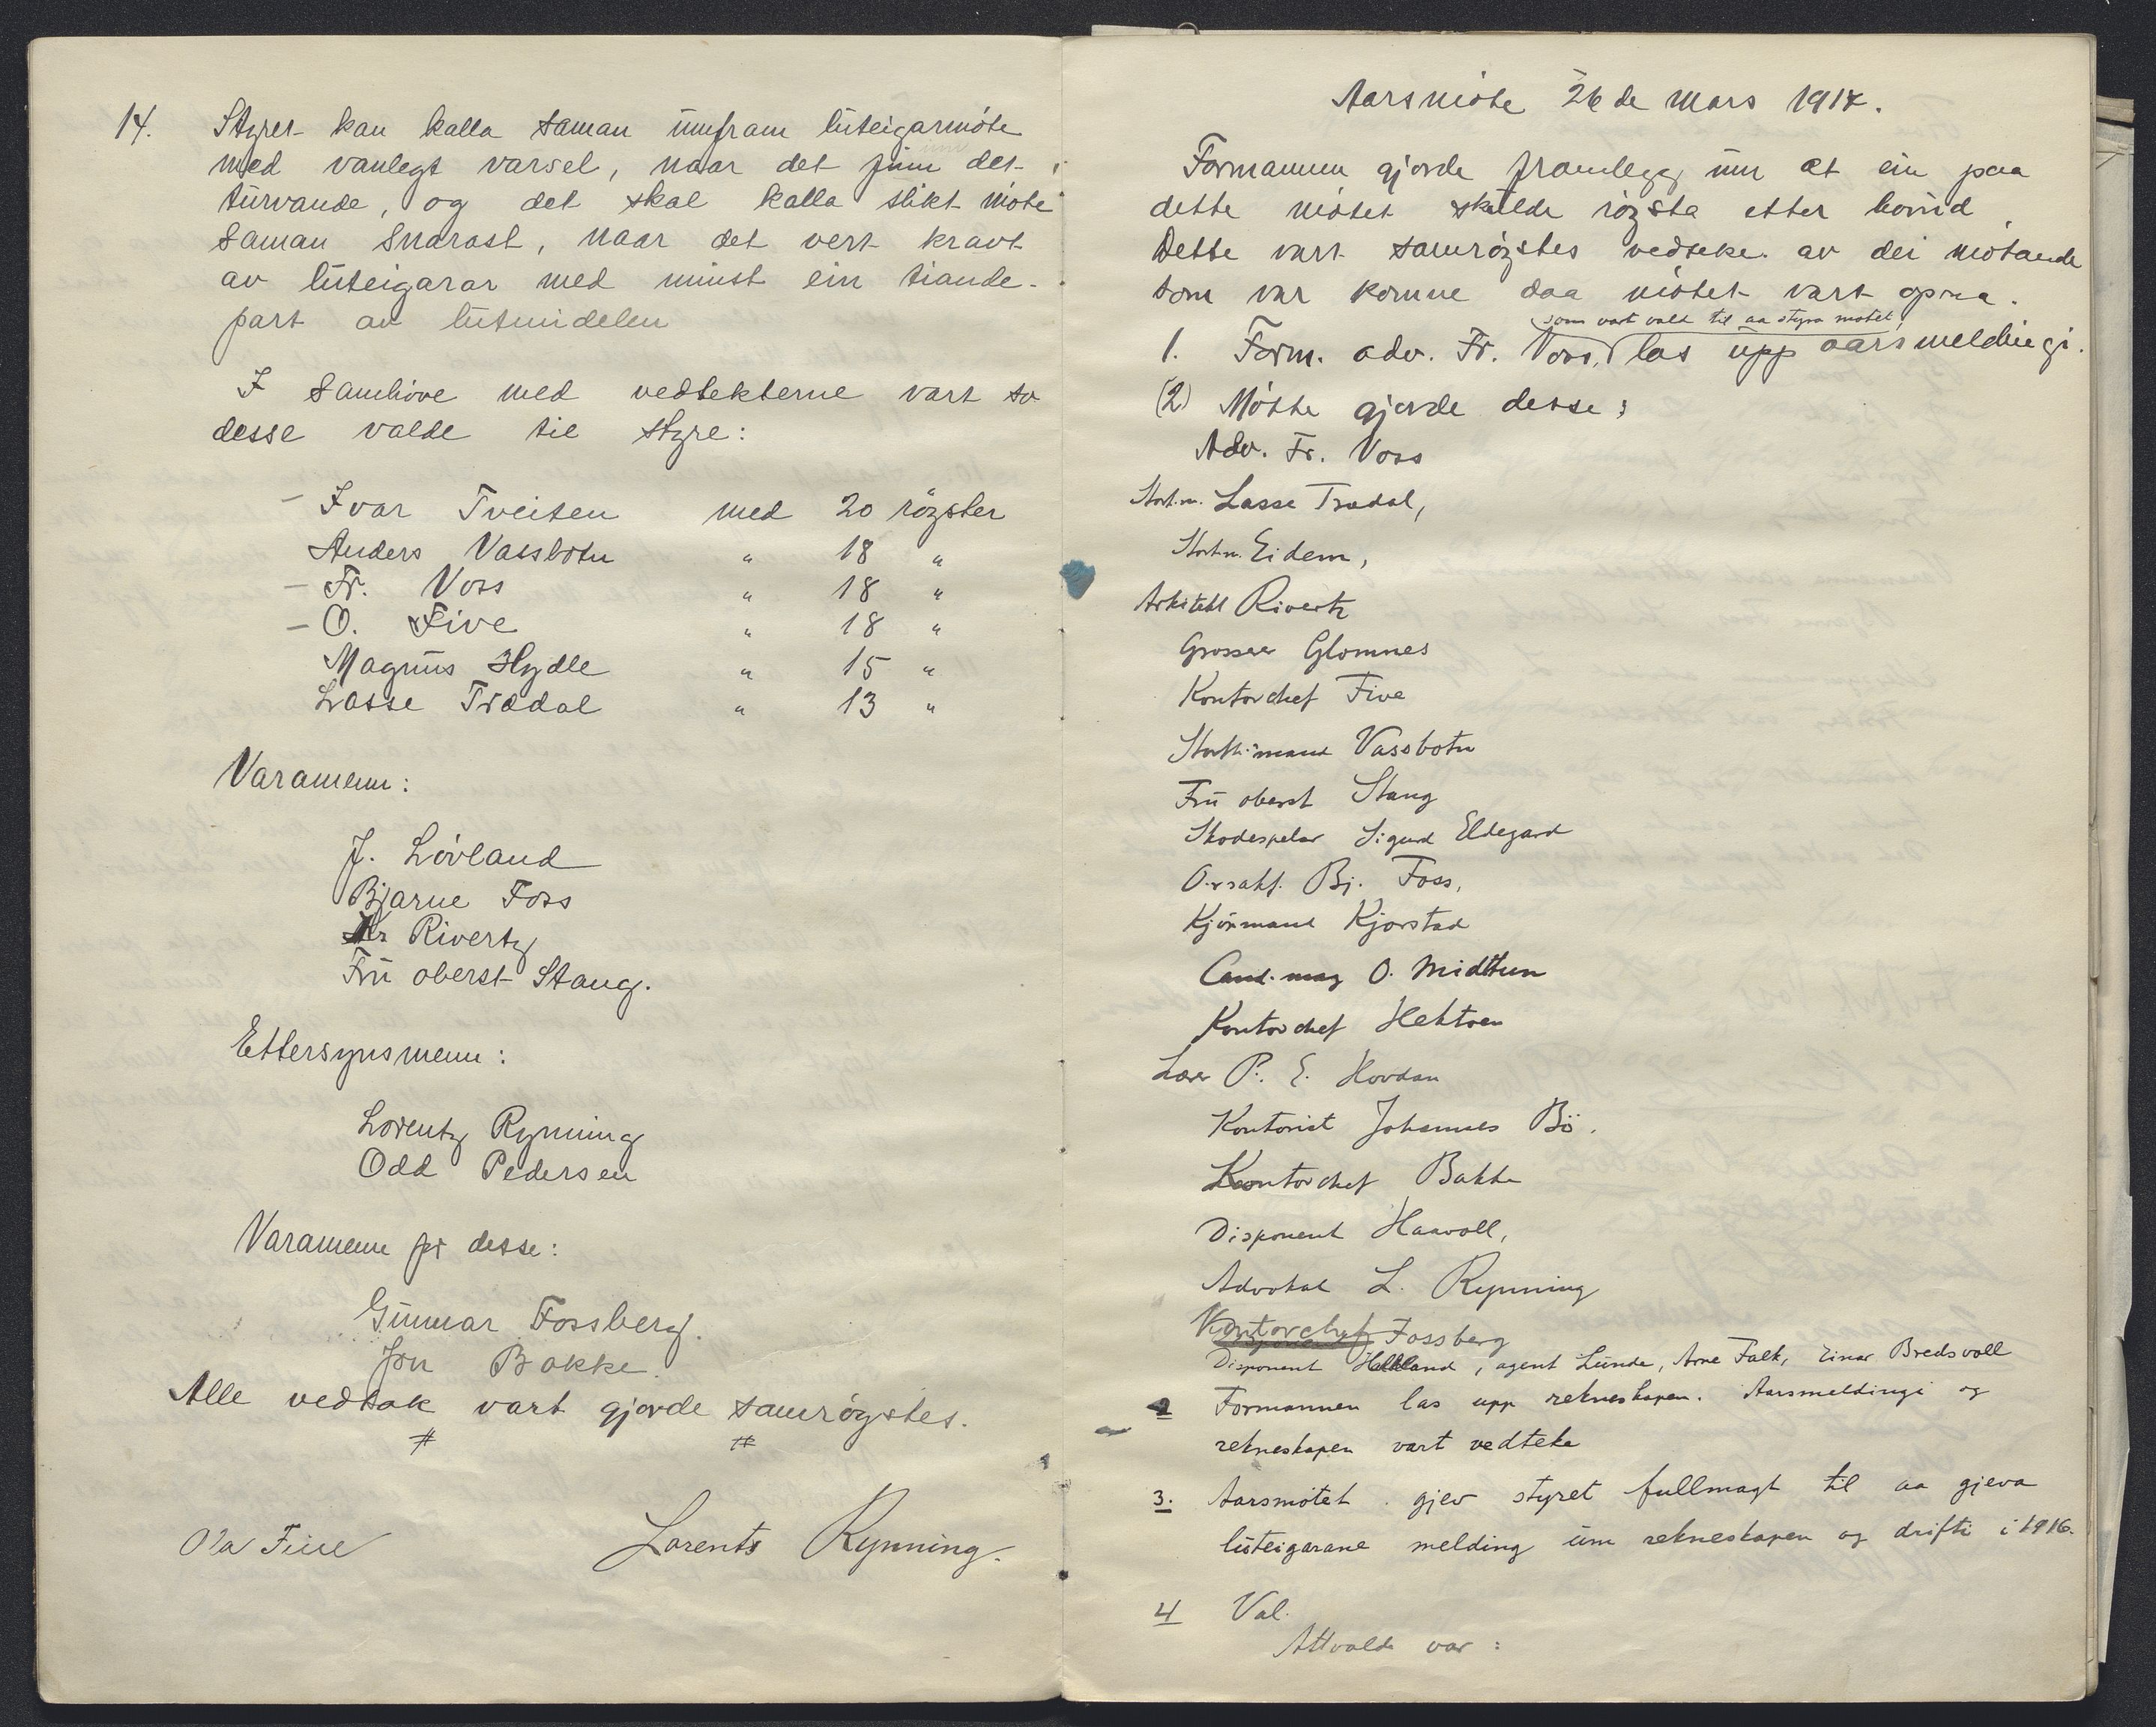 14. Styret kan kalla saman umfram luteigarmöte
med vanlegt varsel, naar det finn det
turvande, og det skal kalla slikt möte
saman snarast, naar det vert kravt
av luteigarar med minst ein tiande-
part av lutmidelen
I samhöve med vedtekterne vart so
desse valde til styre:
- Ivar Tveiten med 20 röyster
Anders Vassbotn " 18 "
- Fr. Voss " 18 "
- O. Five " 18 "
Magnus Hydle " 15 "
Lasse Trædal " 13 "
Varamenn:
J. Lövland
Bjarne Foss
Kr Rivertz
Frü oberst Stang.
Ettersynsmenn:
Lorentz Rynning
Odd Pedersen
Varamenn for desse:
Gunnar Fossberg.
Jon Bakke.
Alle vedtak vart gjorde samröystes.
# #
Ola Five Lorents Rynning.
Aarsmöte 26 de Mars 1917.
Formannen gjorde framlegg um at ein paa
dette mötet skulde röysta etter hovud.
Dette vart samröystes vedteke av dei mötande
som var komne daa mötet vart opna.
som vart vald til aa styra mötet,
1. Form. adv. Fr. Voss, las upp aarsmeldingi.
(2) Mötte gjorde desse:
Adv. Fr. Voss
Stort.m. Lasse Trædal,
Stort.m. Eidem,
Arkitekt Rivertz
Grosser Glomnes
Kontorchef Five
Storth.mand Vassbotn
Frü oberst Stang
Skodespelar Sigurd Eldegard
O.r.sakf. Bj. Foss,
Kjöpmand Kjorstad
Cand. mag O. Midttun
Kontorchef Hektoen
Lærer P. E. Hovdan
Kontorist Johannes Bö.
Kontorchef Bakke
Disponent Haavoll,
Advokat L. Rynning
Kontorchef Fossberg
Disponent Helland, agent Lunde, Arne Falk, Einar Bredsvoll
2 Formannen las upp rekneskapen. Aarsmeldingi og
rekneskapen vart vedteke
3. Aarsmötet gjev styret fullmagt til aa gjeva
luteigarane melding um rekneskapen og drifti i 1916.
4 Val.
Attvalde var: